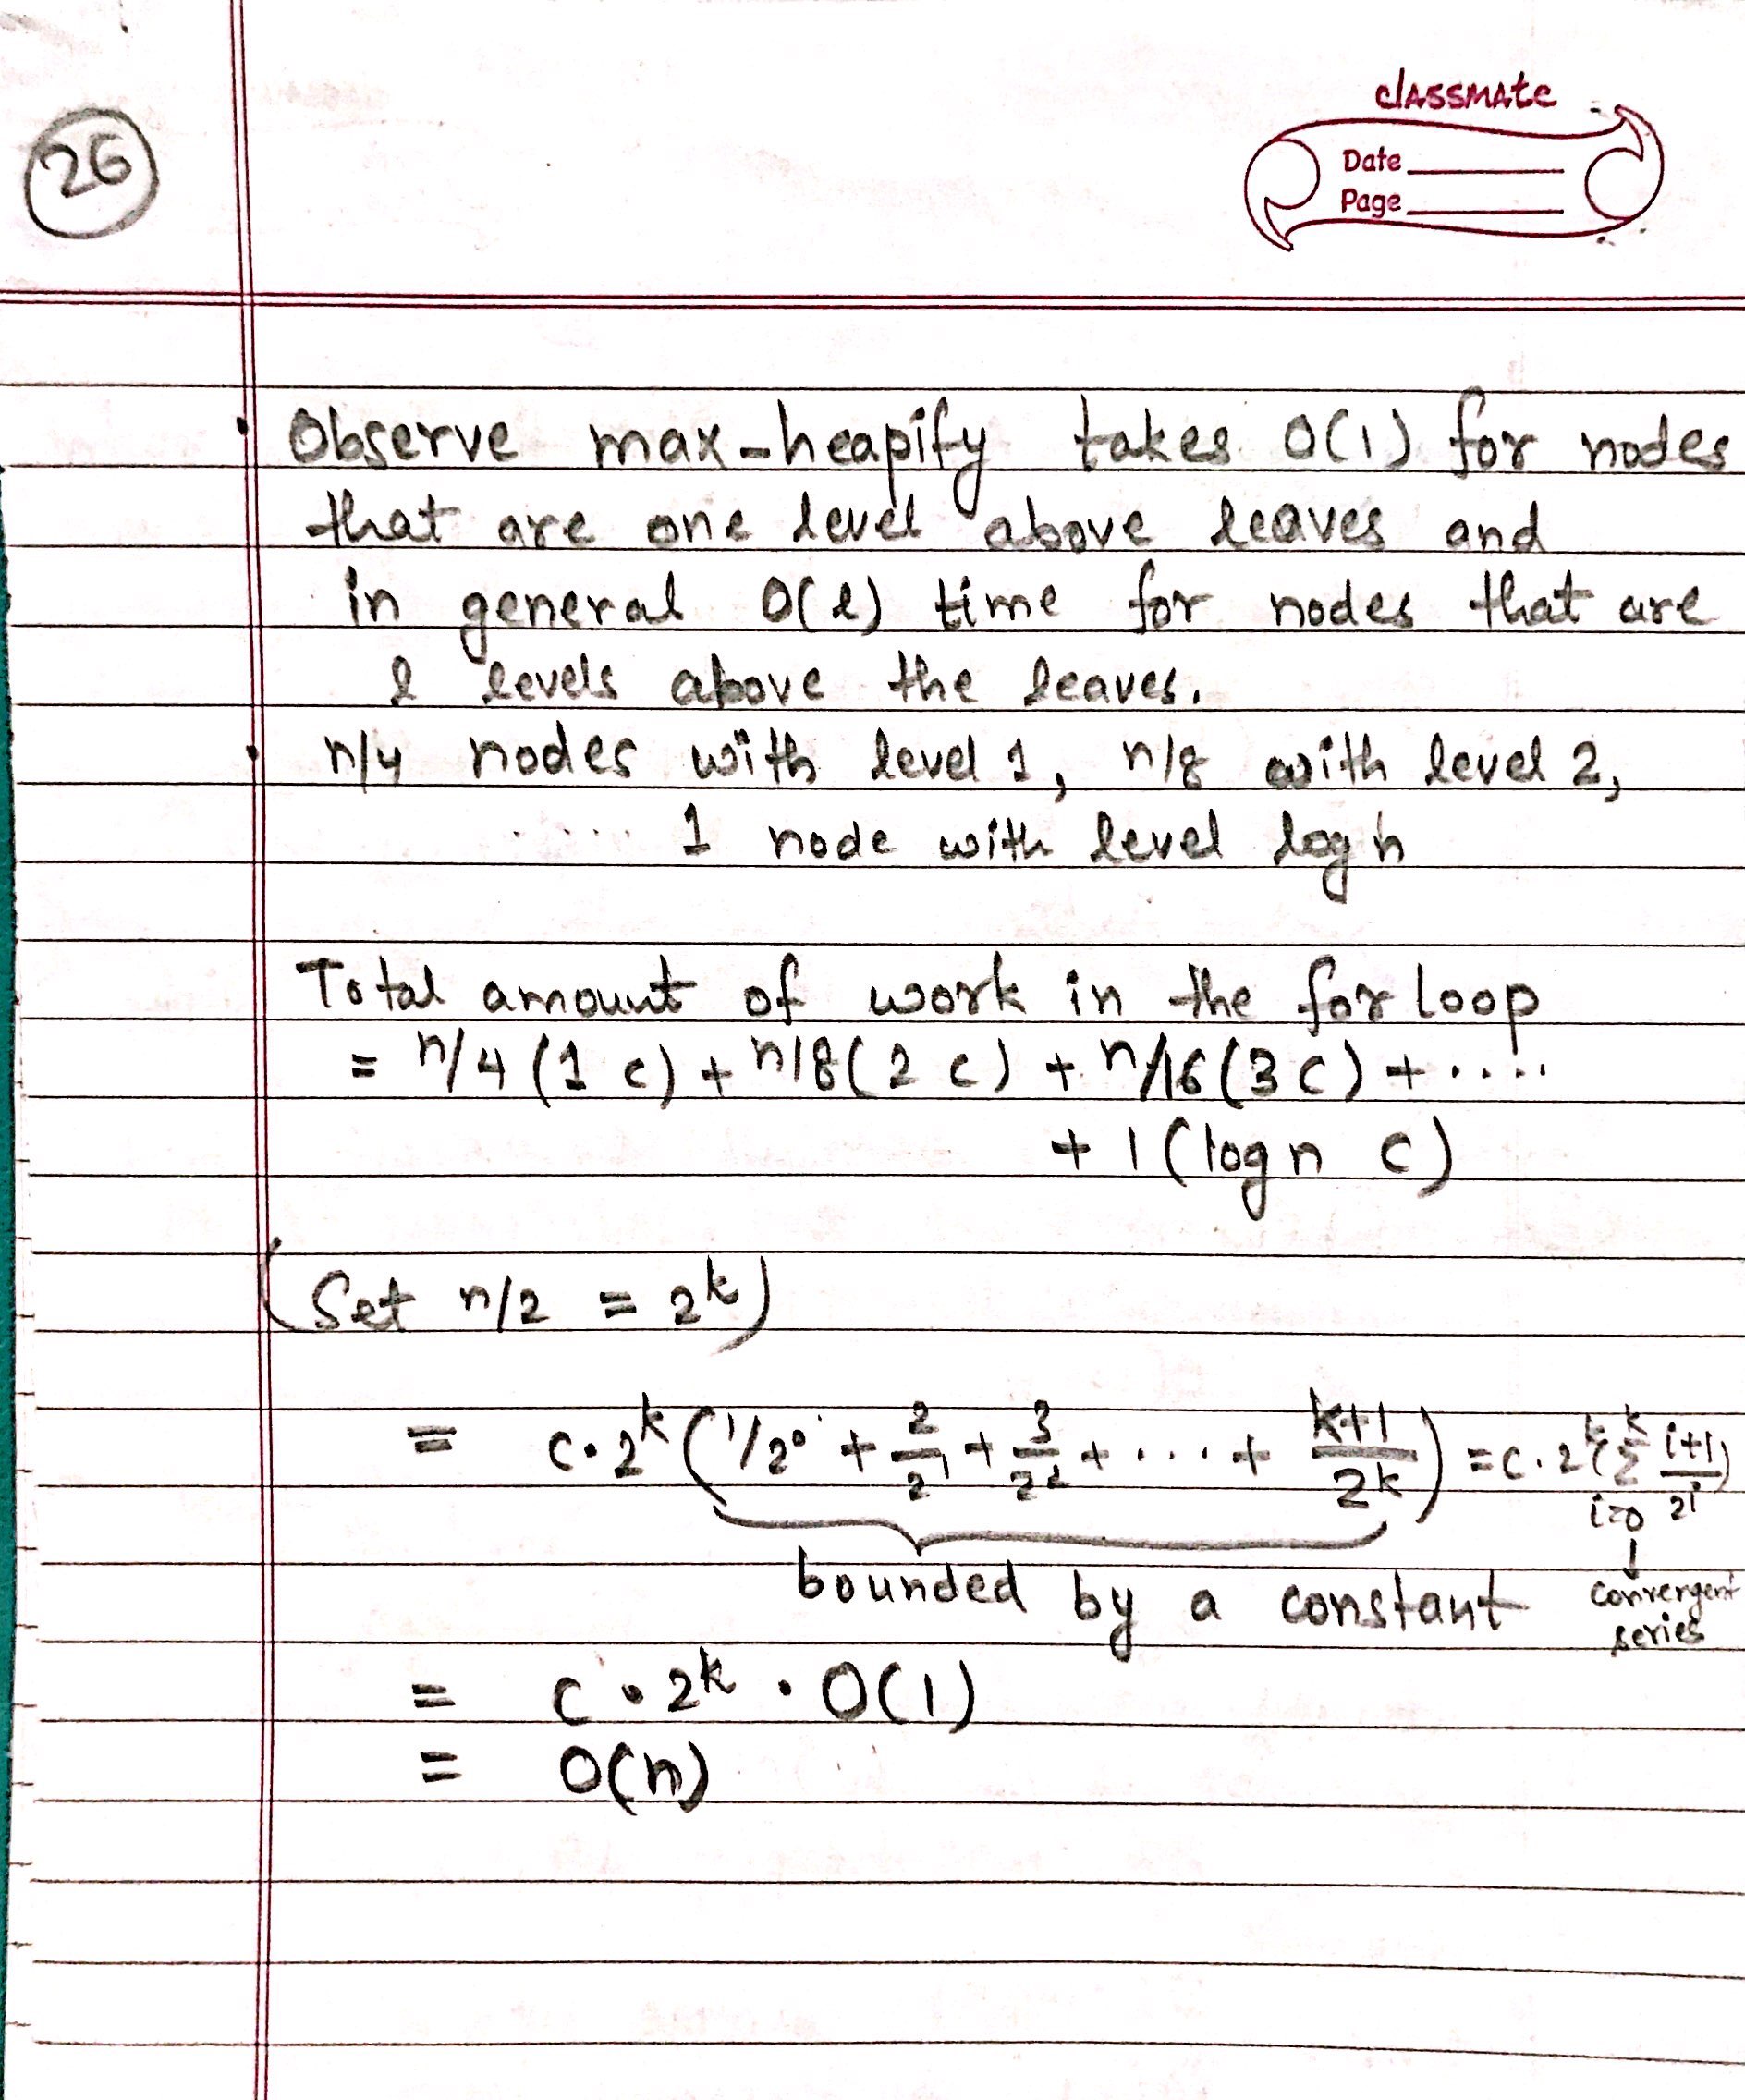 26
classmate
Date
Page
Observe max-heapify takes O(1) for nodes
that are one level above leaves and
in general O(l) time for nodes that are
l levels above the leaves.
n/4 nodes with level 1, n/8 with level 2,
..... 1 node with level log n
Total amount of work in the for loop
= n/4 (1 c) + n/8 (2 c) + n/16 (3 c) + .....
+ 1 (log n c)
(Set n/2 = 2^k)
= c · 2^k (1/2^0 + 2/2^1 + 3/2^2 + .... + k+1/2^k) = c · 2^k (Σ_{i=0}^{k} i+1/2^i)
bounded by a constant ↓ convergent series
= c · 2^k · O(1)
= O(n)